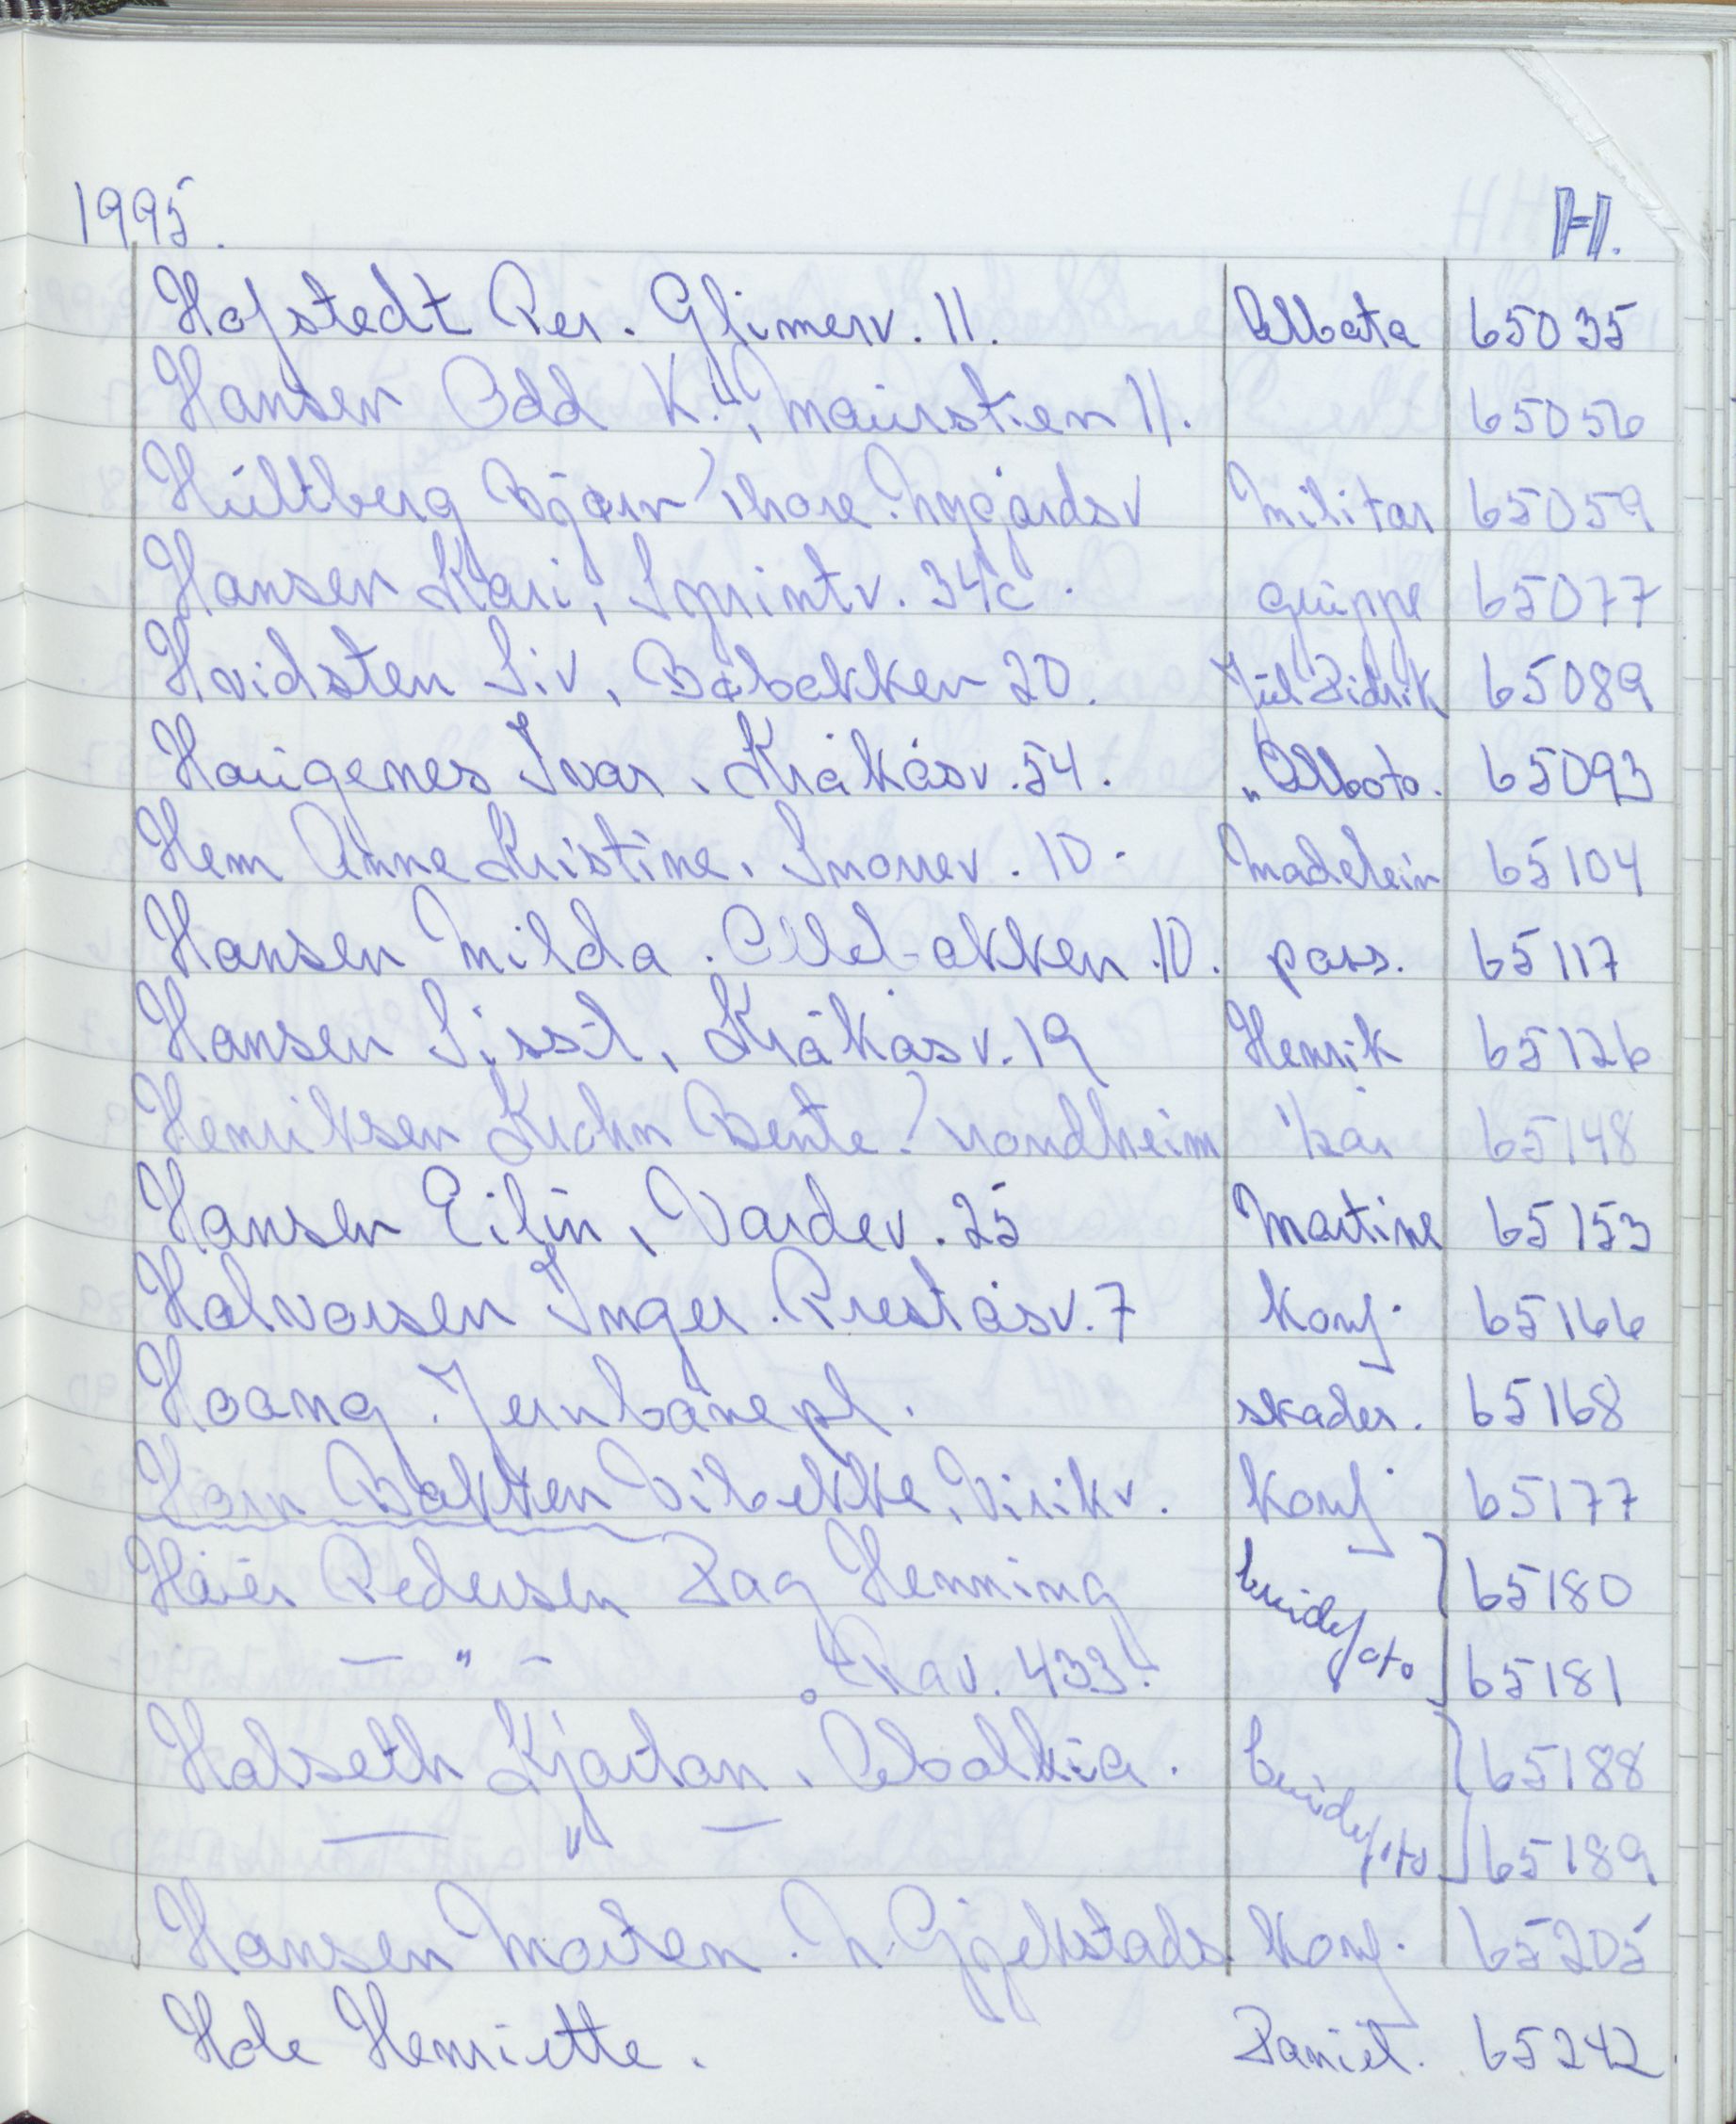 1995. H.
Hofstedt Per. Glimerv. 11. 65035
Hansen Odd K. Maurstien 11. 65056
Hultberg Bjørn Thore. Nygårdsv Militær 65059
Hansen Kari, Sprintv. 34c. gruppe 65077
Hvidsten Siv, Bøbakken 20. Jul Didrik 65089
Haugenes Ivar. Kråkåsv. 54. 65093
Hem Anne Kristine. Snorrev. 10. Madelein 65104
Hansen Milda. 10. pass. 65117
Hansen Sissel, Kråkåsv. 19 Henrik 65126
Henriksen Krohn Bente. Trondheim 1/2 år 65148
Hansen Eilin, Vardev. 25 Martine 65153
Halvorsen Inger. Preståsv. 7 Konf. 65166
Hoang. Jernbanepl. skader. 65168
Horn Bakken Vibekke, Virikv. Konf 65177
Høier Pedersen Dag Henning brudefoto 65180
— " — Rav. 433. 65181
Halseth Kjartan. brudefoto 65188
— " — 65189
Hansen Morten. N. Gjekstadv Konf. 65205
Hole Henriette. Daniel. 65242